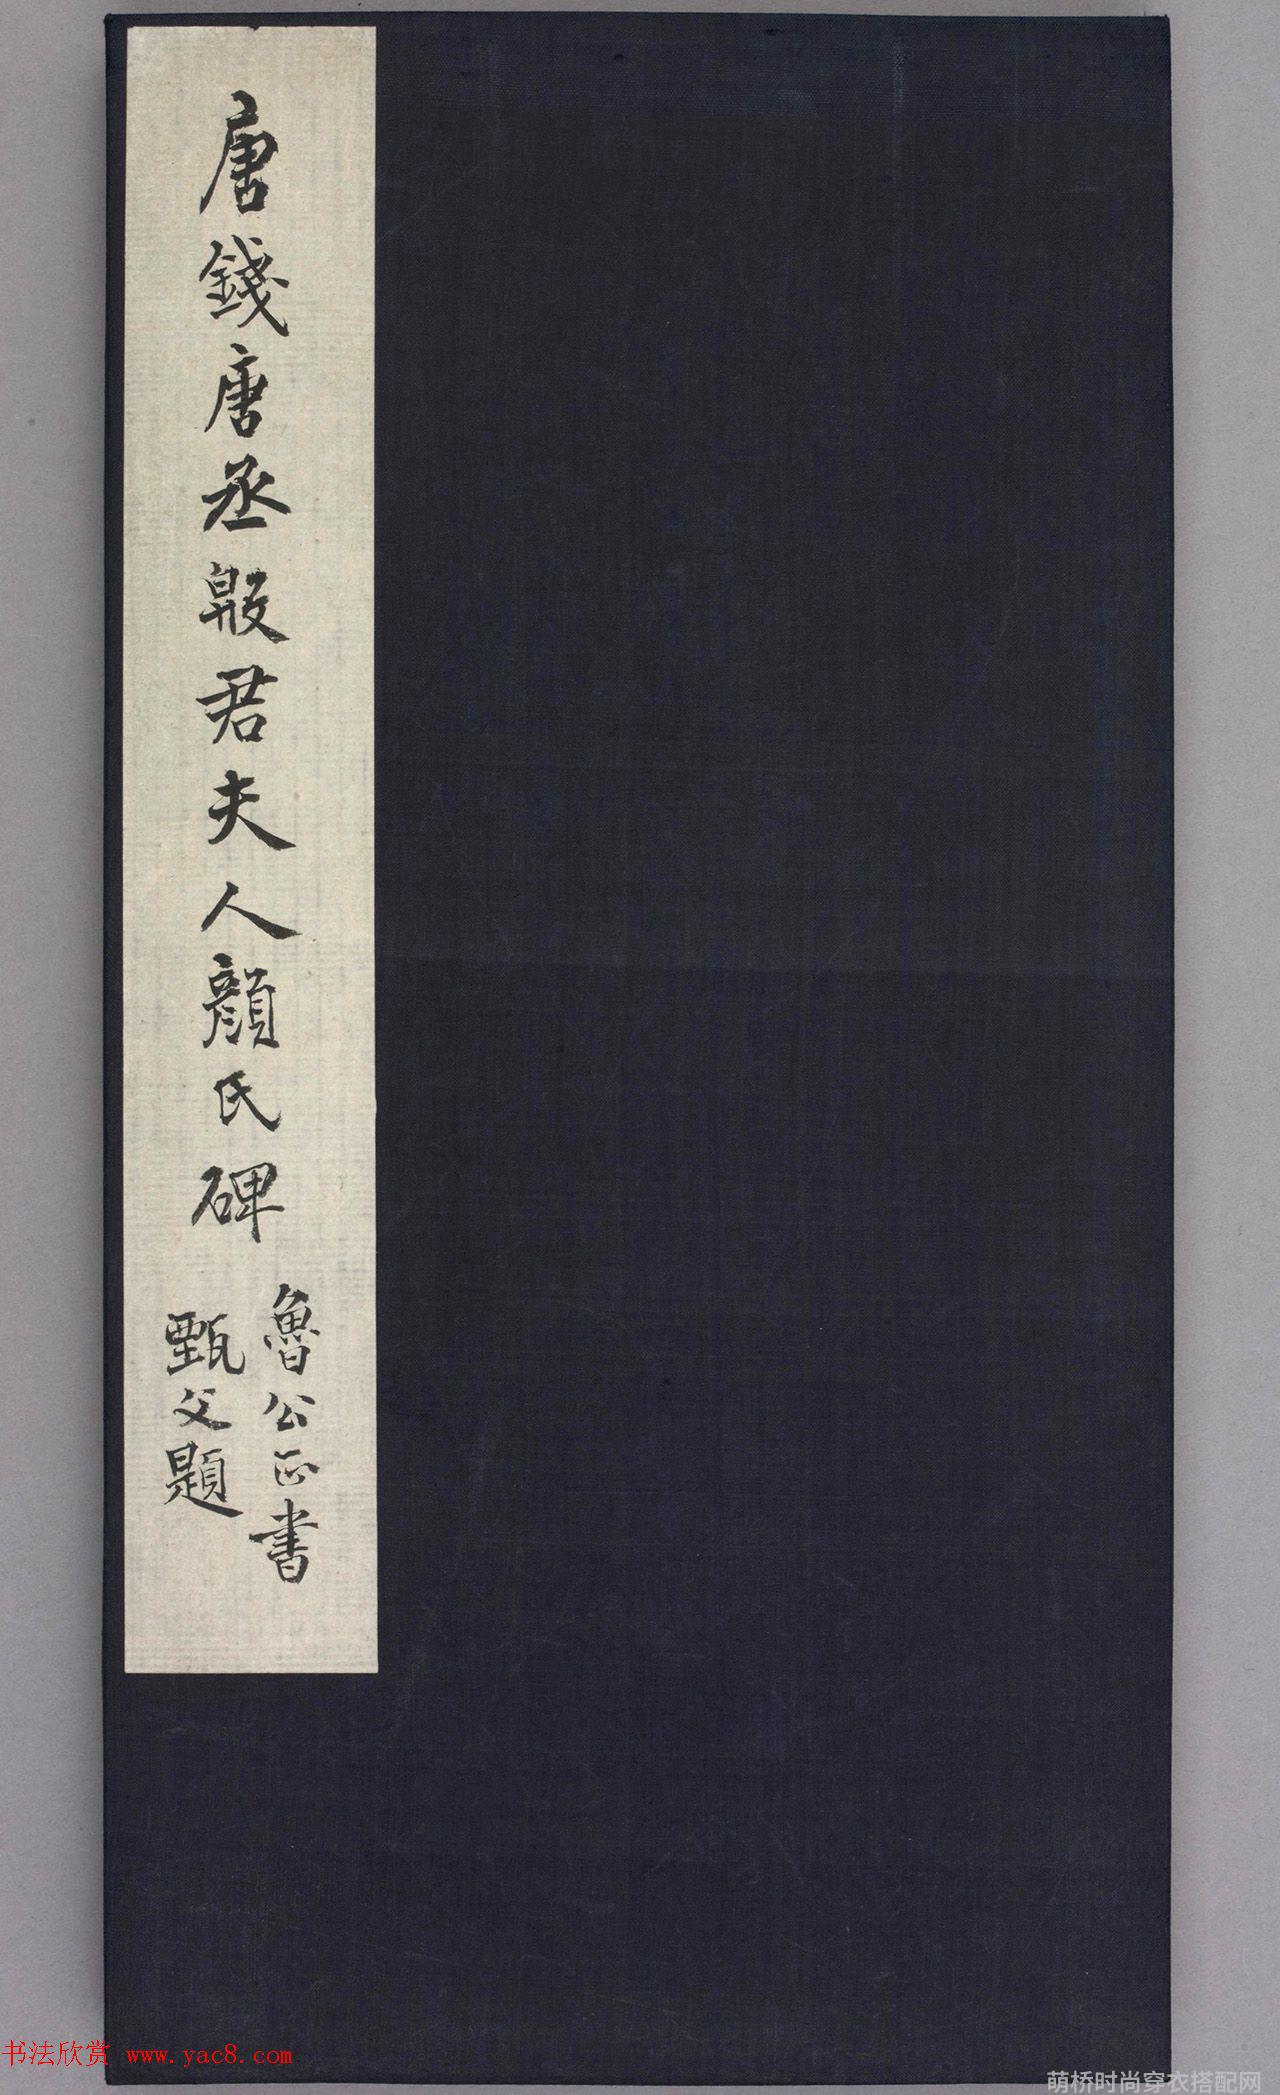 唐錢唐丞殷君夫人顏氏碑
魯公正書
甄父題
书法欣赏 www.yac8.com
萌桥时尚穿衣搭配网